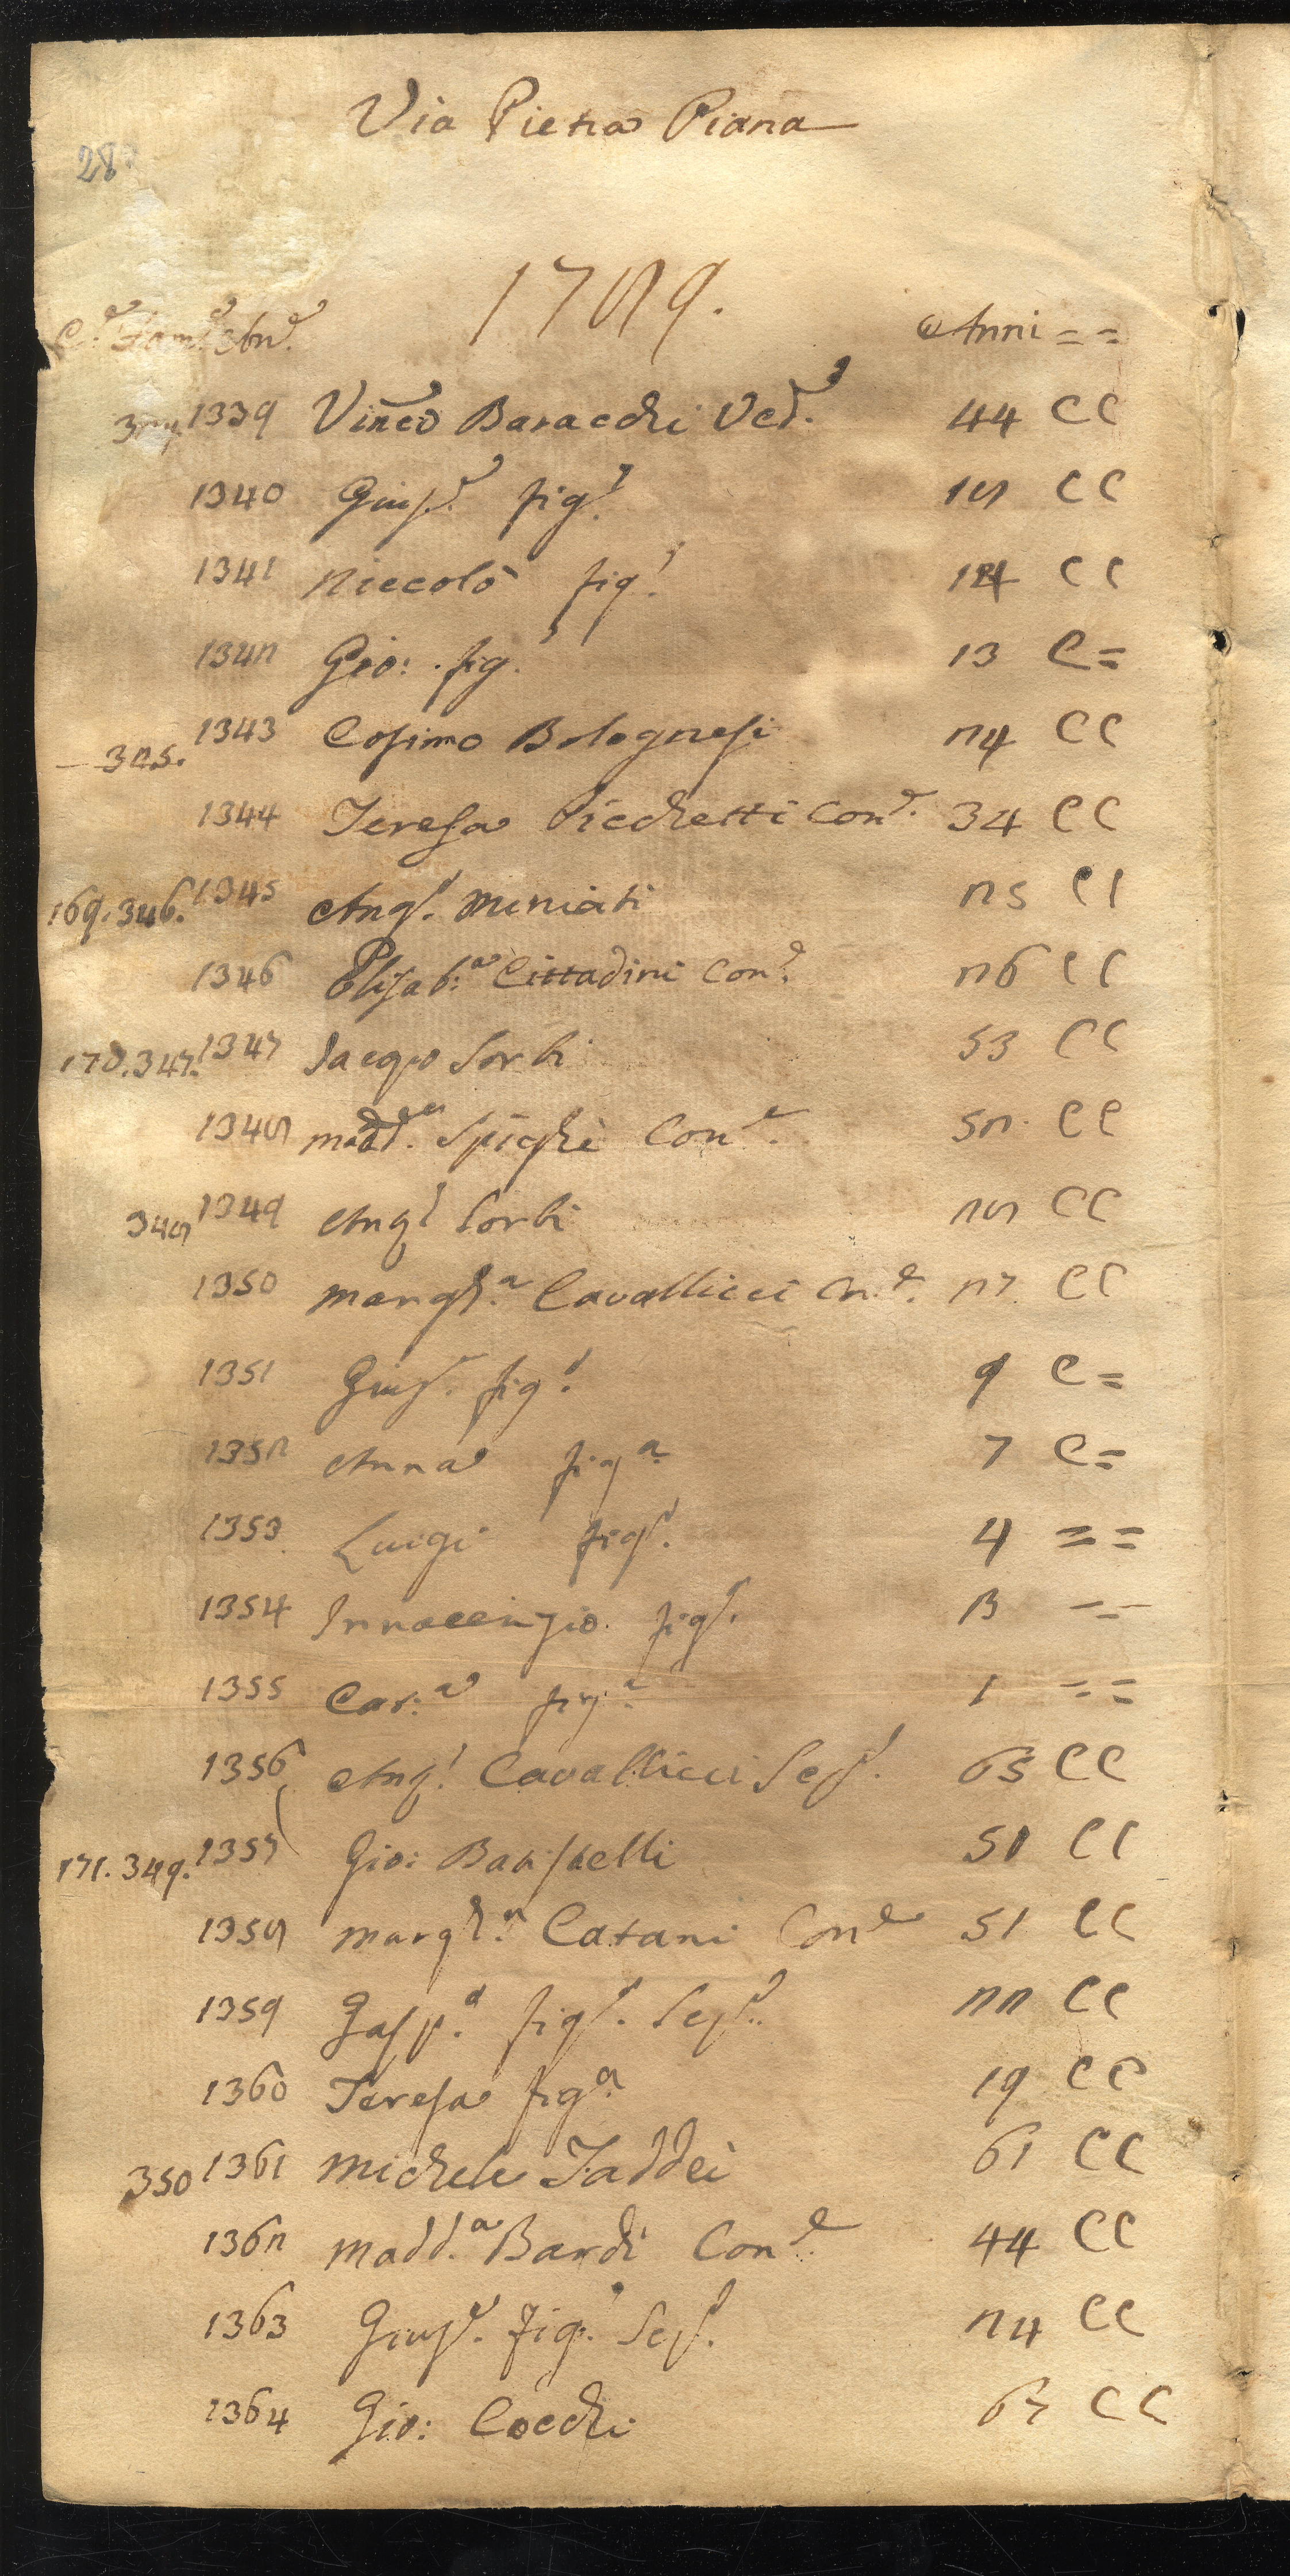 Via Pietra Piana
28
1789.
C.e Fam.e An.e Anni = =
1339 Vinco Baracchi Ved.o 44 C C
1340 Giusp.e fig.o 18 C C
1341 Niccolò fig.o 14 C C
1342 Gio: fig.o 13 C =
345. 1343 Cosimo Bolognesi 24 C C
1344 Teresa Picchetti Con.e 34 C C
169. 346. 1345 Ang.o Miniati 25 C C
1346 Elisab:a Cittadini Con.e 26 C C
170. 347. 1347 Jacopo Sorbi 53 C C
1348 Madd.a Spighi Con.e 52. C C
348 1349 Ang.o Sorbi 28 C C
1350 Margh.a Cavallicci Con.e 27 C C
1351 Giusp.e fig.o 9 C =
1352 Anna fig.a 7 C =
1353 Luigi fig.o 4 = =
1354 Innocenzio fig.o 3 = =
1355 Cat:a fig.a 1 = =
1356 Ang.o Cavallicci Sep.o 65 C C
171. 349. 1357 Gio: Batistelli 50 C C
1358 Margh.a Catani Con.e 51 C C
1359 Gasp.o fig.o Sep.o 22 C C
1360 Teresa fig.a 19 C C
350 1361 Michele Taddei 61 C C
1362 Madd.a Bardi Con.e 44 C C
1363 Giusp.e fig.o Sep.o 24 C C
1364 Gio: Cocchi 67 C C